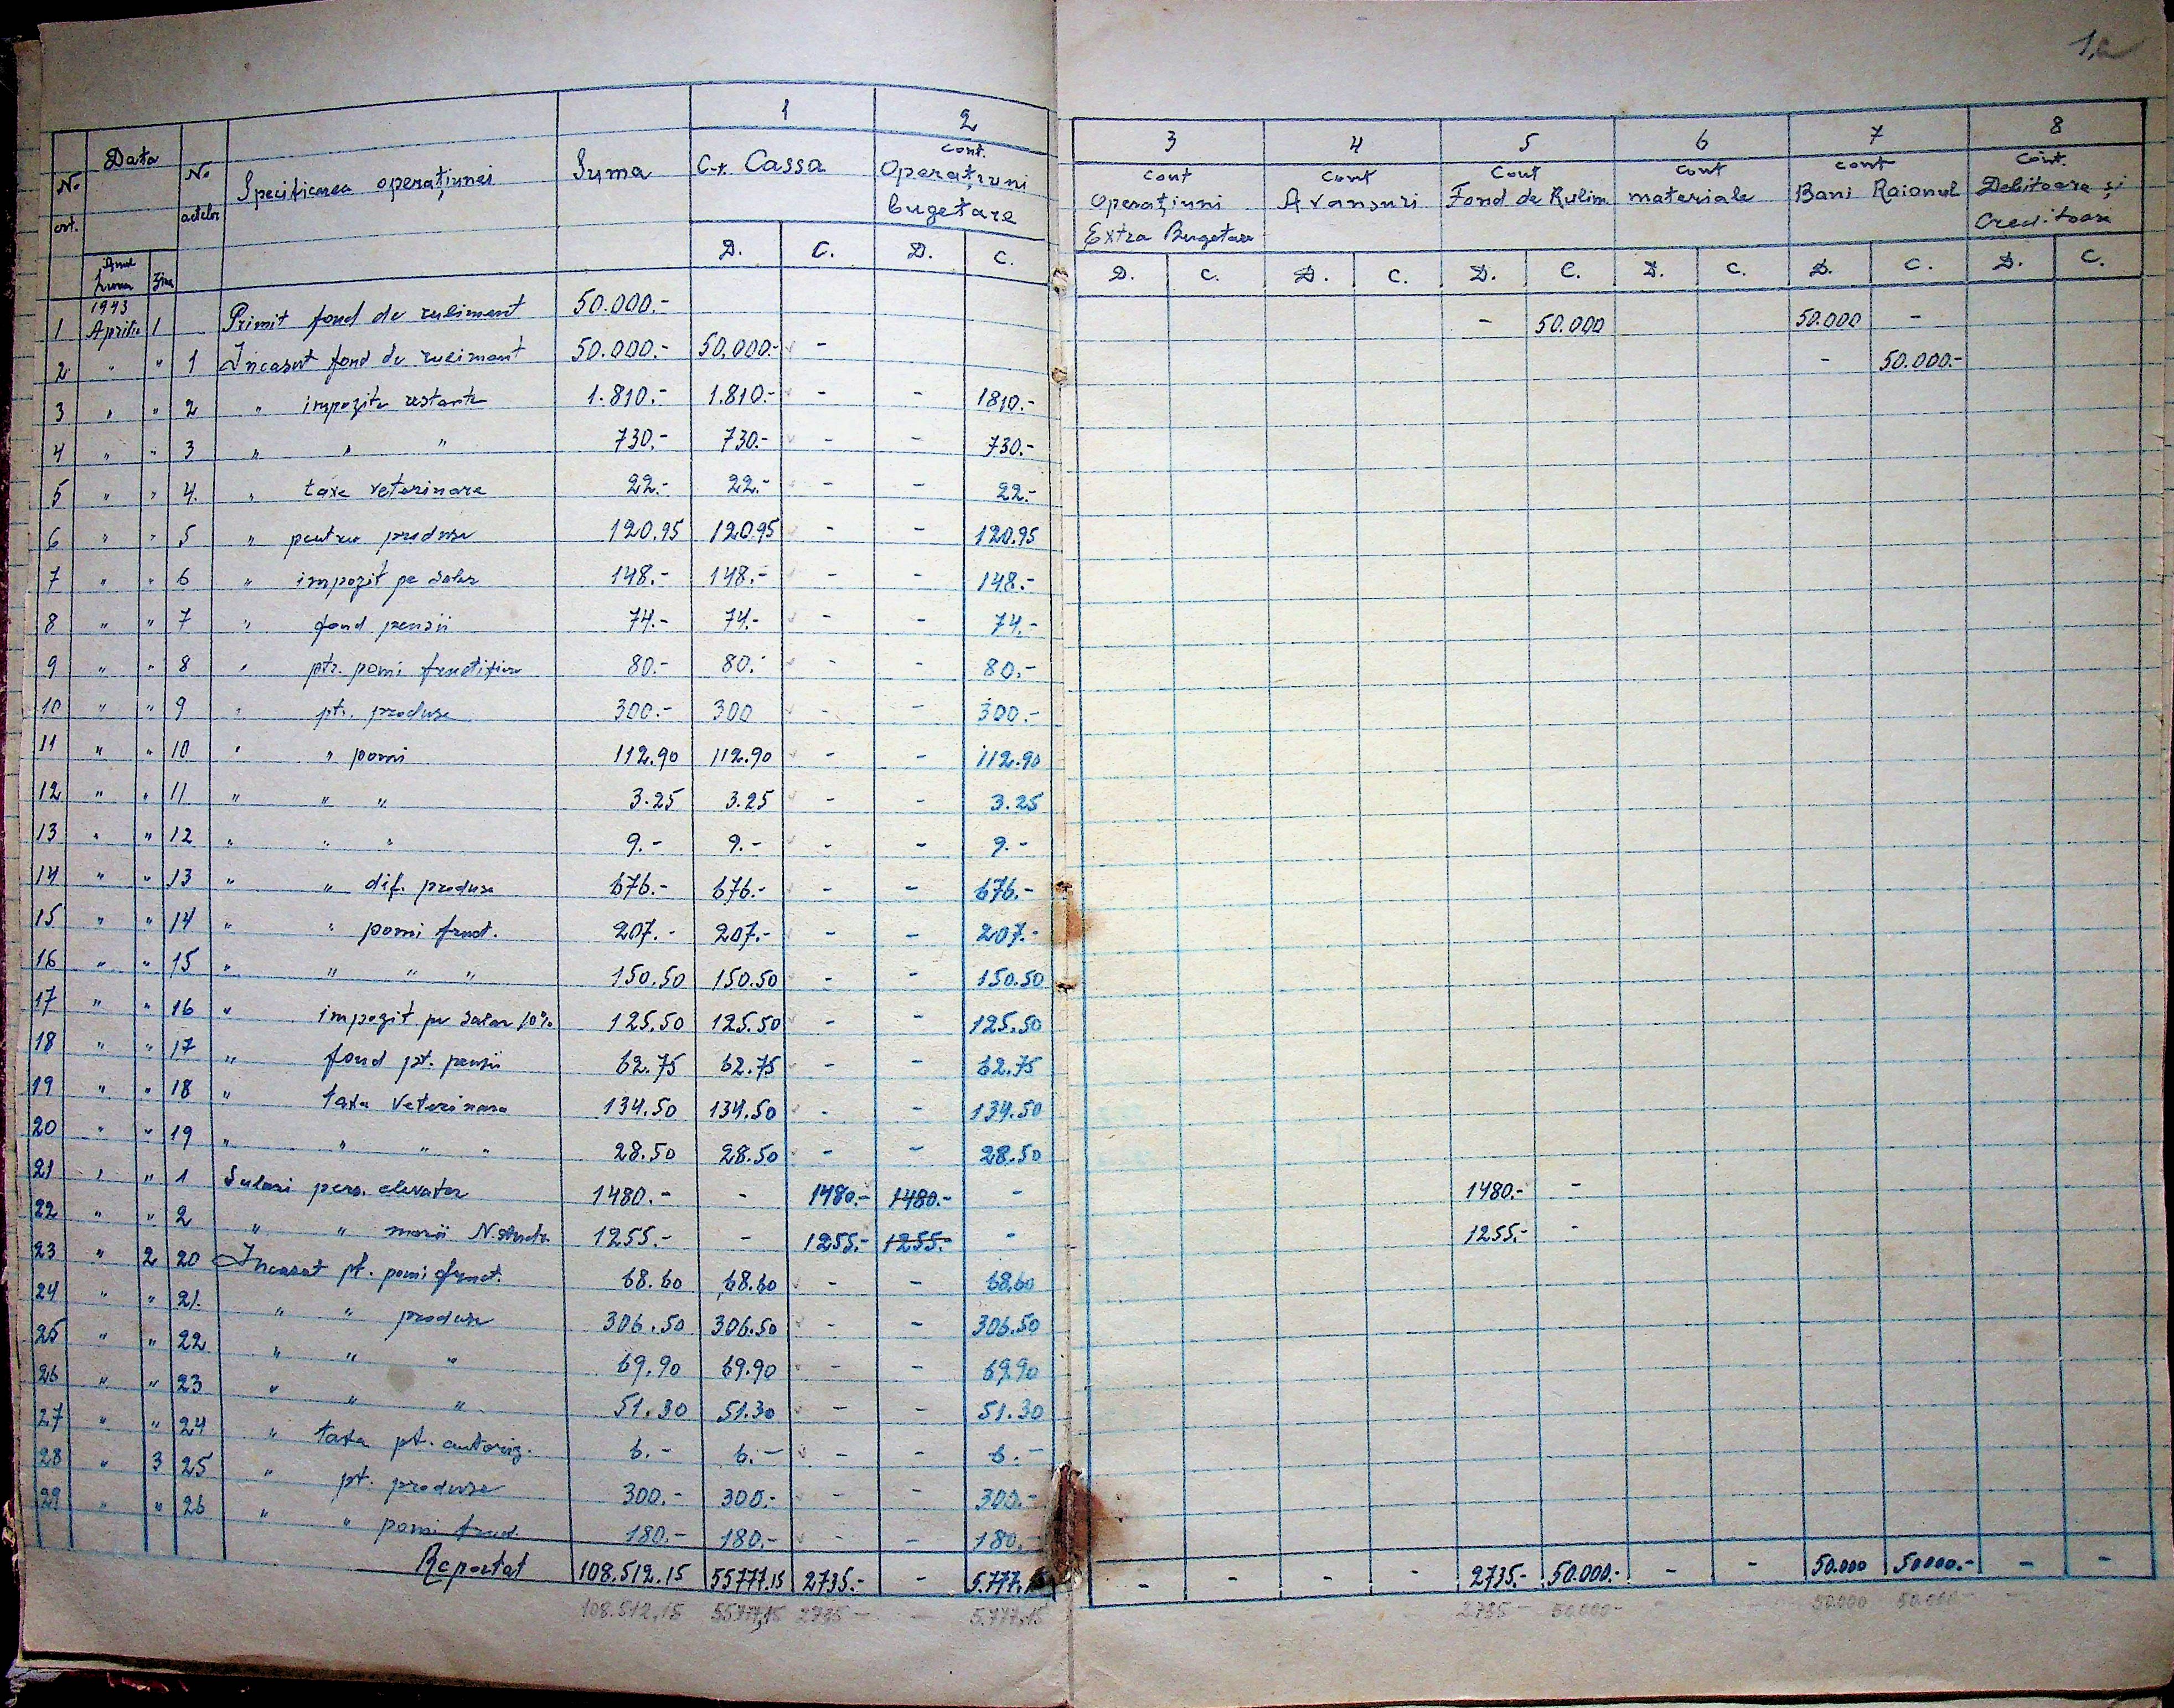 1,a
1 2 3 4 5 6 7 8
No crt. Data No actelor Specificarea operațiunei Suma C-t. Cassa cont. Operațiuni bugetare cont Operațiuni Extra Bugetare cont Avansuri Cont Fond de Rulim cont materiale cont Bani Raionul cont. Debitoare și Creditoare
Anul Luna Ziua D. C. D. C. D. C. D. C. D. C. D. C. D. C. D. C.
1943
1 Aprilie 1 Primit fond de ruliment 50.000.- - 50.000 50.000 -
2 " " 1 Încasat fond de ruliment 50.000.- 50.000.- - - 50.000.-
3 " " 2 " impozite restante 1.810.- 1.810.- - - 1810.-
4 " " 3 " " " 730.- 730.- - - 730.-
5 " " 4. " taxe veterinare 22.- 22.- - - 22.-
6 " " 5 " pentru produse 120.95 120.95 - - 120.95
7 " " 6 " impozit pe salar 148.- 148.- - - 148.-
8 " " 7 " fond pensii 74.- 74.- - - 74.-
9 " " 8 " ptr. pomi fructiferi 80.- 80.- - - 80.-
10 " " 9 " pt. produse 300.- 300 - - 300.-
11 " " 10 " " pomi 112.90 112.90 - - 112.90
12 " " 11 " " " 3.25 3.25 - - 3.25
13 " " 12 " " " 9.- 9.- - - 9.-
14 " " 13 " " dif. produse 676.- 676.- - - 676.-
15 " " 14 " " pomi fruct. 207.- 207.- - - 207.-
16 " " 15 " " " " 150.50 150.50 - - 150.50
17 " " 16 " impozit pe salar 10% 125.50 125.50 - - 125.50
18 " " 17 " fond pt. pensii 62.75 62.75 - - 62.75
19 " " 18 " taxa veterinara 134.50 134.50 - - 134.50
20 " " 19 " " " " 28.50 28.50 - - 28.50
21 " " 1 Salari pers. elevator 1480.- - 1480.- 1480.- - 1480.- -
22 " " 2 " " morii 1255.- - 1255.- 1255.- - 1255.- -
23 " 2 20 Încasat pt. pomi fruct. 68.60 68.60 - - 68.60
24 " " 21. " " produse 306.50 306.50 - - 306.50
25 " " 22 " " " 69.90 69.90 - - 69.90
26 " " 23 " " " 51.30 51.30 - - 51.30
27 " " 24 " taxa pt. autoriz. 6.- 6.- - - 6.-
28 " 3 25 " pt. produse 300.- 300.- - - 300.-
29 " " 26 " " pomi fruct. 180.- 180.- - - 180.-
Reportat 108.512.15 55777.15 2735.- - 5.777.15 - - - - 2735.- 50.000.- - - 50.000 50000.- - -
108.512,15 55777,15 2735 - - 5.777,15 2735 - 50.000 - 50.000 50.000 -